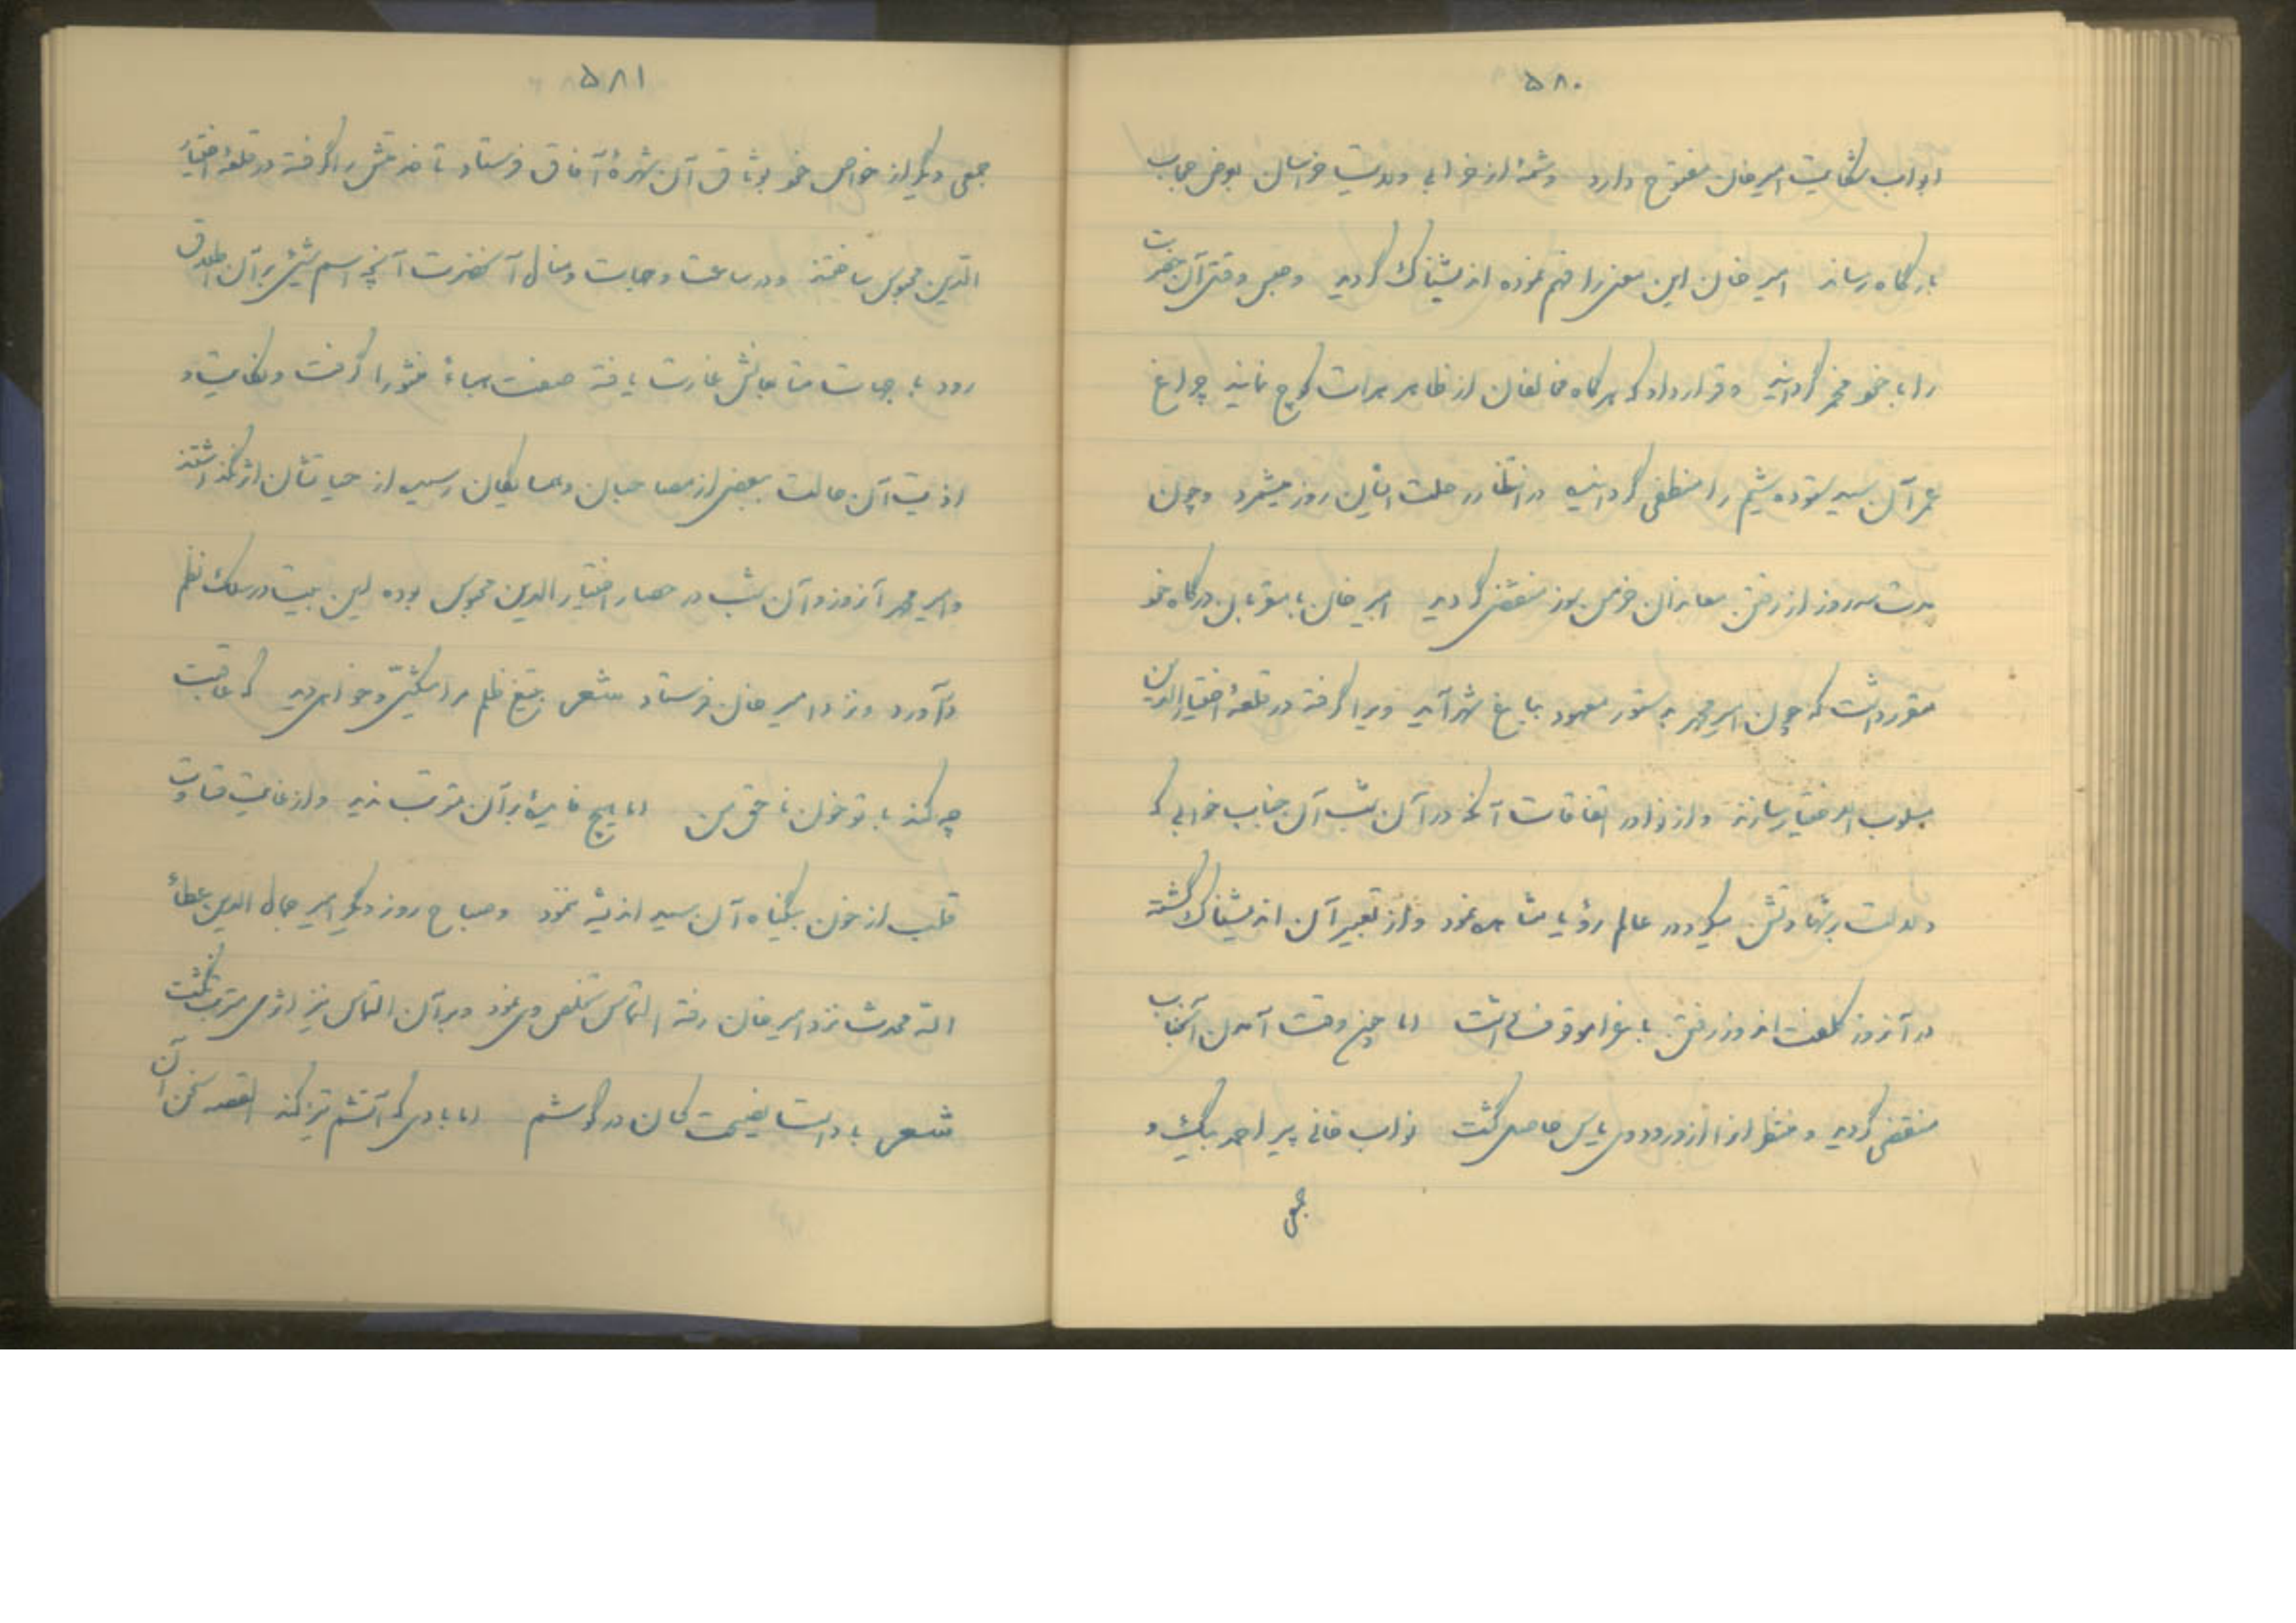 ۵۸۰
ابواب شکایت امیر خان مفتوح دارد و شمهٔ از خرابی ولایت خراسان بعرض حجاب
بارگاه رساند امیر خان این معنی را فهم نموده اندیشناک گردید و حبس و قتل آن حضرت
را با خود مخمر گردانید و قرار داد که هر گاه مخالفان از ظاهر هرات کوچ نمایند چراغ
عمر آن سید ستوده شیم را منطفی گرداند در انتظار رحلت ایشان روز میشمرد و چون
مدت سه روز از رفتن معاندان خرمن سوز منقضی گردید امیر خان با مقربان درگاه خود
مقرر داشت که چون امیر محمد بدستور معهود بباغ شهر آید ویرا گرفته در قلعهٔ اختیارالدین
مسلوب الاختیار سازند و از نوادر اتفاقات آنکه در آن شب آن جناب خوابی که
دلالت بر شهادتش میکرد در عالم رؤیا مشاهده نمود و از تعبیر آن اندیشناک گشته
در آنروز کلفت اندوز رفتن باغ را موقوف داشت اما چون وقت آمدن آنجناب
منقضی گردید و منتظران را از ورود وی یاس حاصل گشت نواب خانی پیر احمد بیک و
جمعی
۵۸۱
جمعی دیگر از خواص خود بوثاق آن شهرهٔ آفاق فرستاد تا خدمتش را گرفته در قلعهٔ اختیار
الدین محبوس ساختند و در ساعت وجهات و منال آنحضرت آنچه اسم شیئ بر آن اطلاق
رود با جهات متابعانش غارت یافته صفت هباءً منثورا گرفت و نکایت و
اذیت آن حالت ببعضی از مصاحبان و همسایگان رسیده از حیاتشان اثر نگذاشتند
و امیر محمد آنروز و آن شب در حصار اختیار الدین محبوس بوده این بیت در سلک نظم
درآورد و نزد امیر خان فرستاد شعر بتیغ ظلم مرا میکشی و خواهی دید که عاقبت
چه کند با تو خون ناحق من اما هیچ فایدهٔ بر آن مترتب ندید و از غایت قساوت
قلب از خون بیگناه آن سید اندیشه ننمود و صباح روز دیگر امیر جمال الدین عطاء
الله محدث نزد امیر خان رفته التماس تخلص وی نمود و بر آن التماس نیز اثری مترتب نگشت
شعر باد است نصیحت کسان در گوشم اما بادی که آتشم تیز کند القصه سخن آن